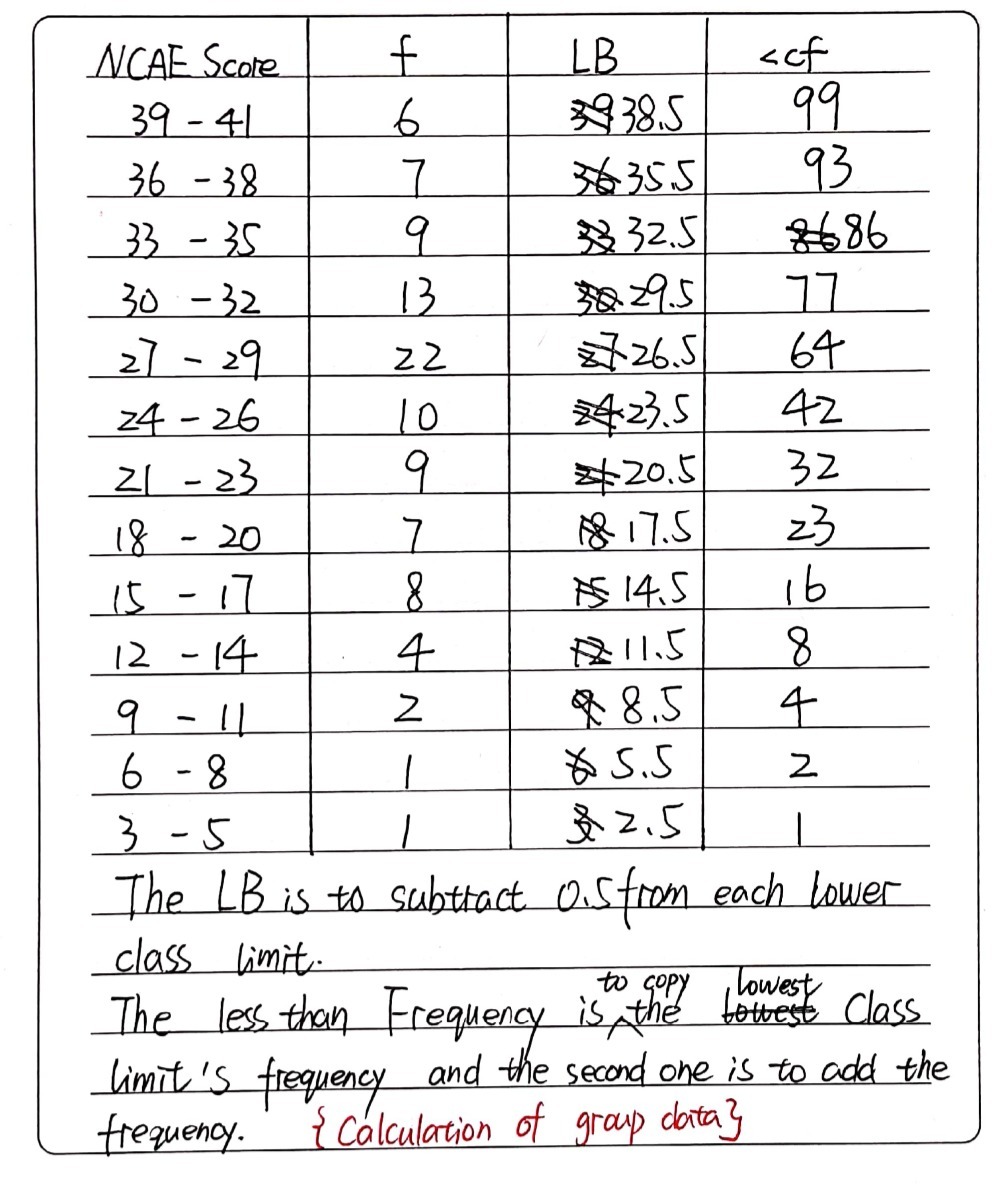 NCAE Score f LB <cf
39 - 41 6 39 38.5 99
36 - 38 7 36 35.5 93
33 - 35 9 33 32.5 86 86
30 - 32 13 30 29.5 77
27 - 29 22 27 26.5 64
24 - 26 10 24 23.5 42
21 - 23 9 21 20.5 32
18 - 20 7 18 17.5 23
15 - 17 8 15 14.5 16
12 - 14 4 12 11.5 8
9 - 11 2 9 8.5 4
6 - 8 1 6 5.5 2
3 - 5 1 3 2.5 1
The LB is to subtract 0.5 from each lower
class limit.
to copy lowest
The less than Frequency is the lowest Class
limit's frequency and the second one is to add the
frequency. {Calculation of group data}